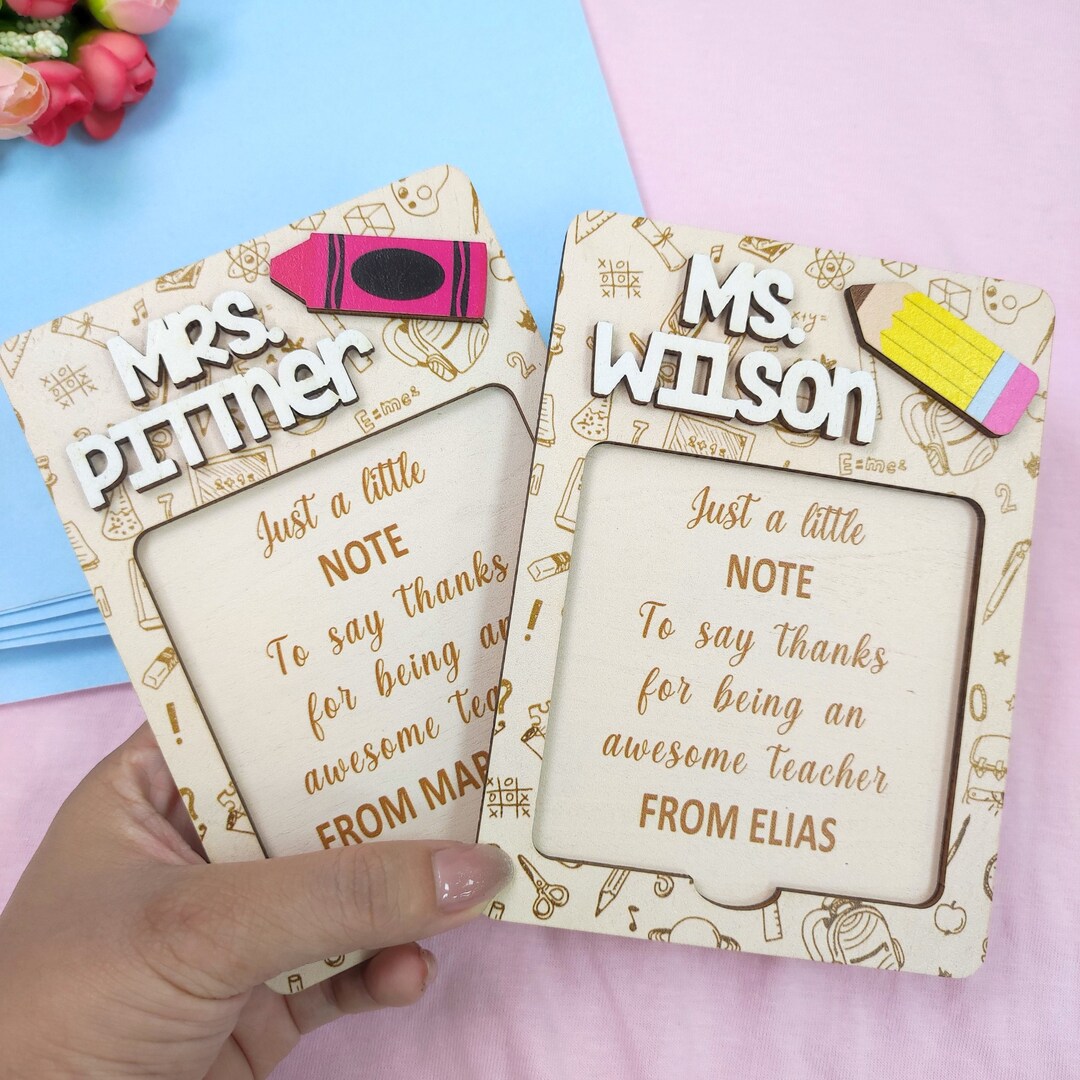 MRS.
PITTNER
E=mc²
Just a little
NOTE
To say thanks
for being an
awesome
FROM
MS.
WILSON
E=mc²
Just a little
NOTE
To say thanks
for being an
awesome teacher
FROM ELIAS